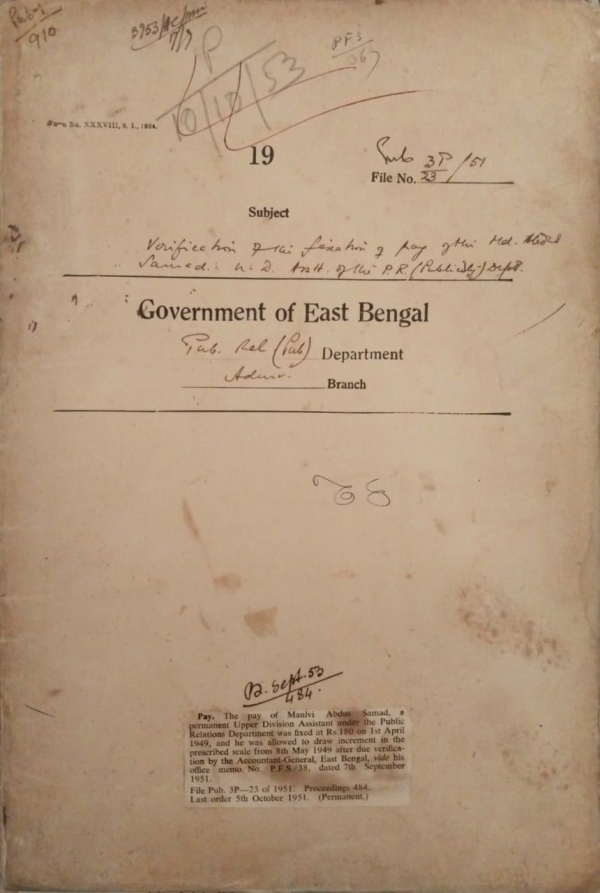 Pub-I
910
3953/
7/7
P
10/10/53
P.F.S
367
Form No. XXXVIII, S. I., 1924.
19
File No. Pub 3P/23 /51
Subject
Verification of the fixation of pay of the Md. Abdus
Samad. U. D. Asstt. of the P.R. (Publicity) Deptt.
Government of East Bengal
Pub. Rel (Pub) Department
Admn. Branch
B. Sept. 53
484.
Pay. The pay of Maulvi Abdus Samad, a
permanent Upper Division Assistant under the Public
Relations Department was fixed at Rs.180 on 1st April
1949, and he was allowed to draw increment in the
prescribed scale from 8th May 1949 after due verifica-
tion by the Accountant-General, East Bengal, vide his
office memo. No. P.F.S./38, dated 7th September
1951.
File Pub. 3P—23 of 1951. Proceedings 484.
Last order 5th October 1951. (Permanent.)